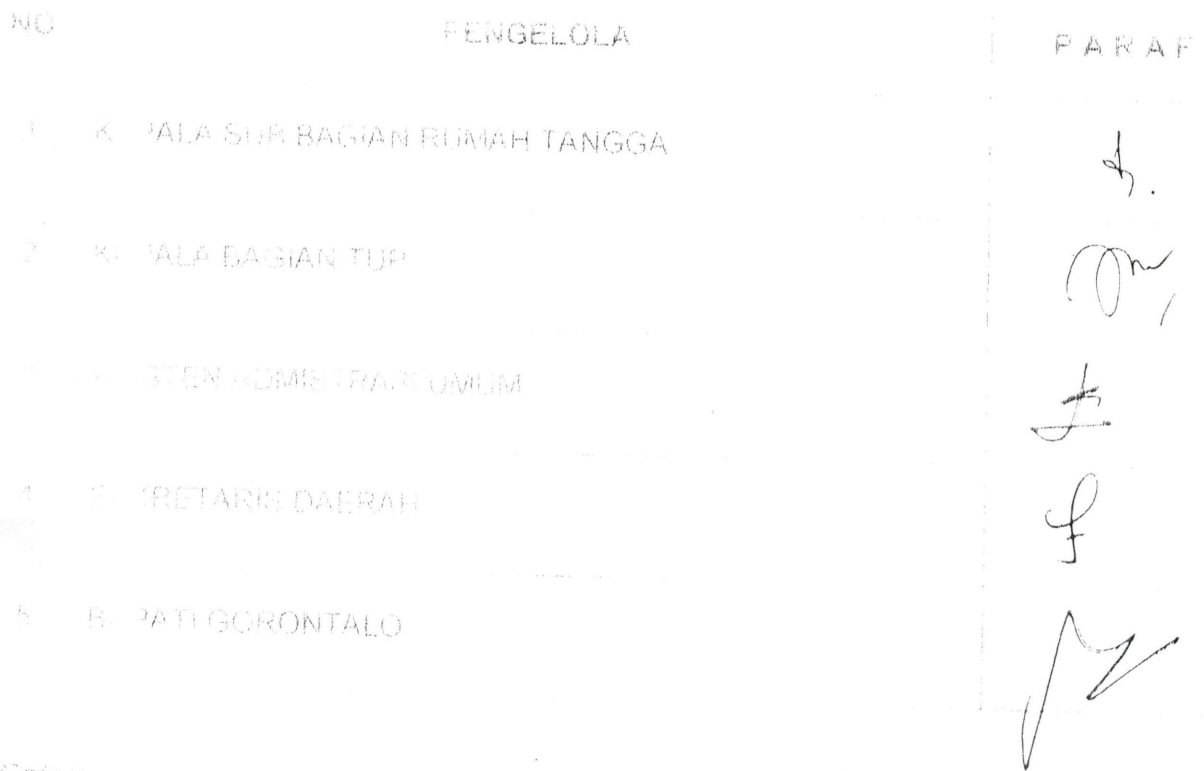 NO PENGELOLA PARAF
1 KEPALA SUB BAGIAN RUMAH TANGGA
2 KEPALA BAGIAN TUP
ADMISTRASI UMUM
4 SEKRETARIS DAERAH
5 BUPATI GORONTALO